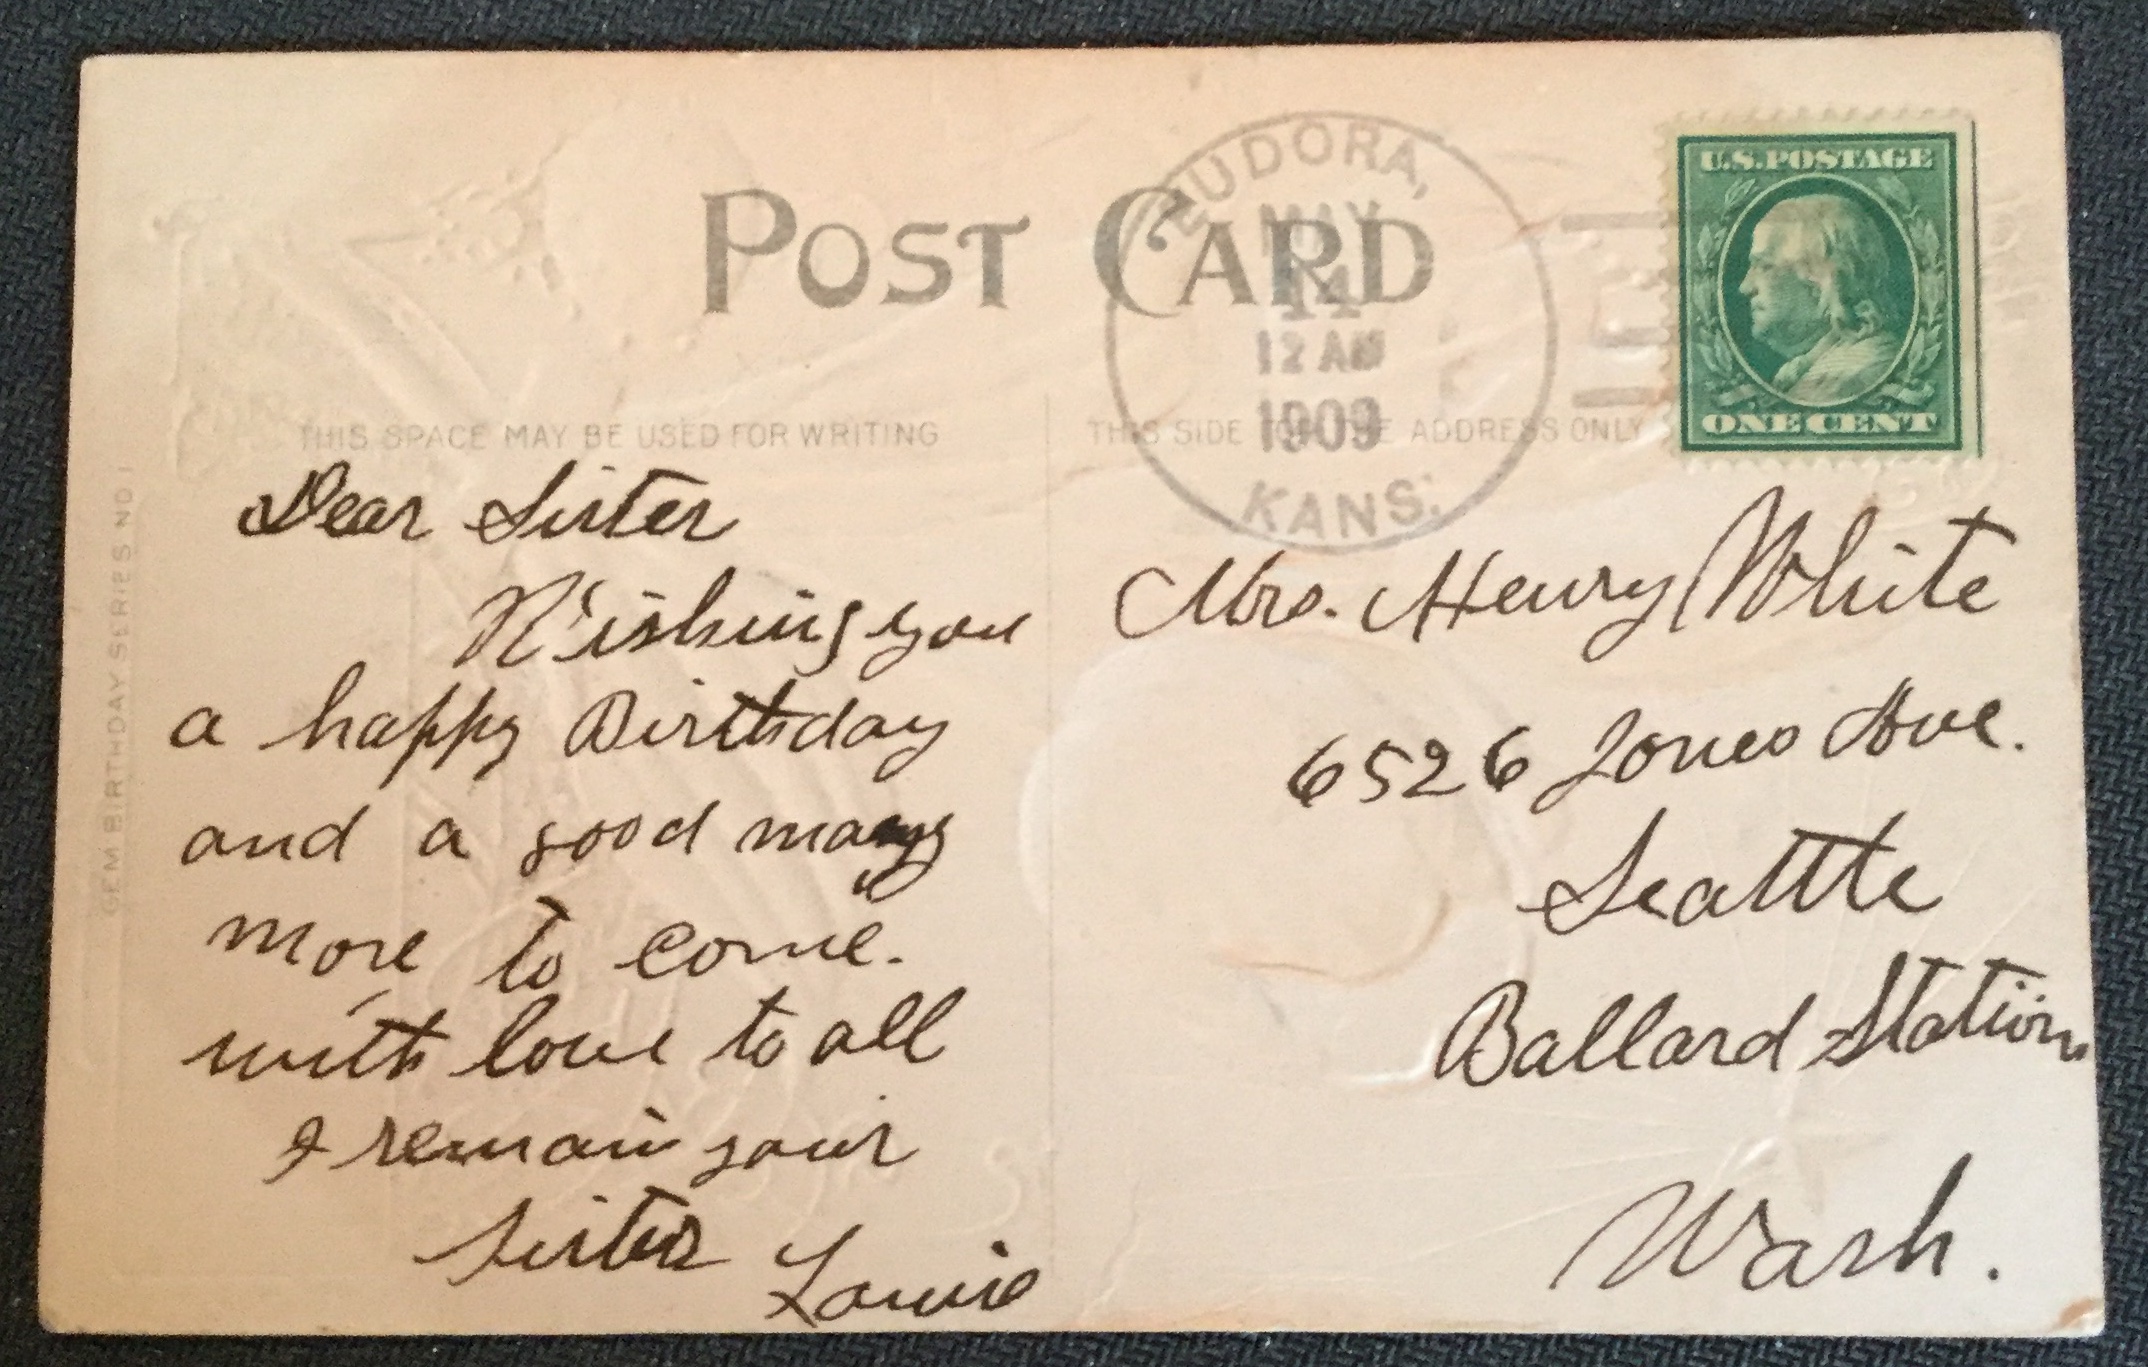 POST CARD
EUDORA,
MAY
14
12 AM
1909
KANS.
U.S. POSTAGE
ONE CENT
THIS SPACE MAY BE USED FOR WRITING
THIS SIDE FOR THE ADDRESS ONLY
GEM BIRTHDAY SERIES NO 1
Dear Sister
Wishing you
a happy Birthday
and a good many
more to come.
with love to all
I remain your
Sister Louie
Mrs. Henry White
6526 Jones Ave.
Seattle
Ballard Station
Wash.